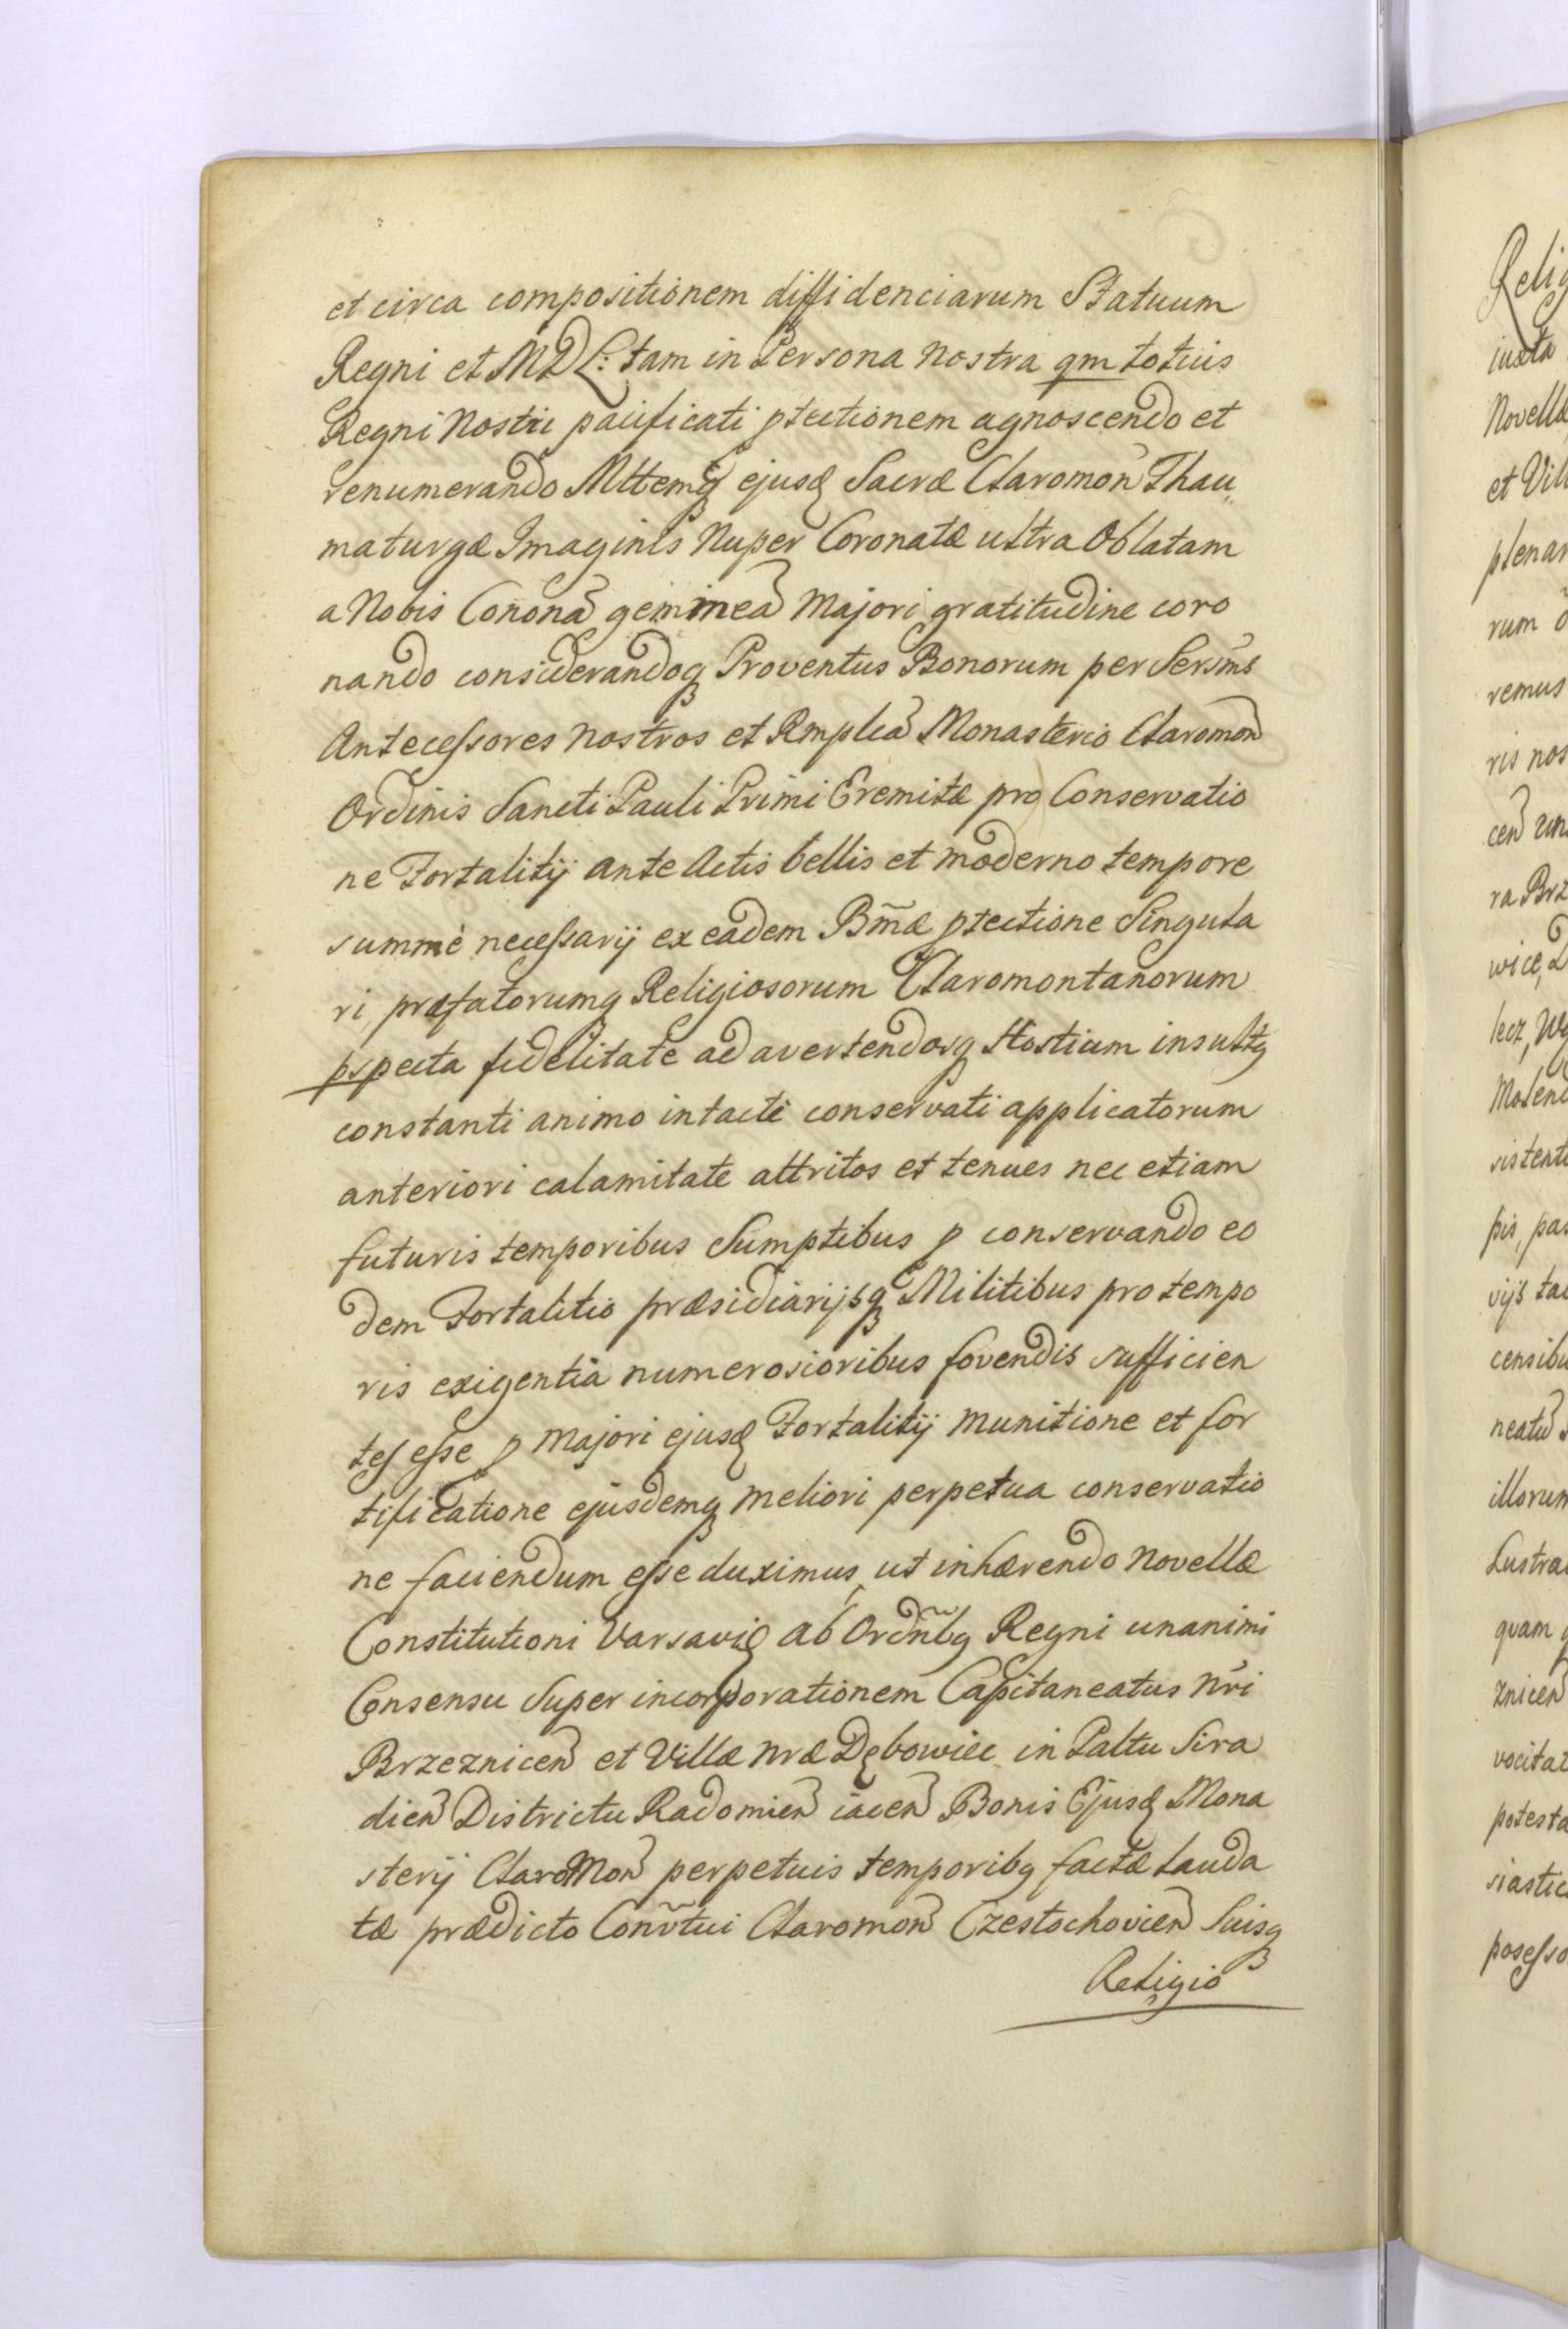 et circa compositionem diffidenciarum Statuum
Regni et M D L: tam in Persona nostra qm totius
Regni Nostri pacificati ptectionem agnoscendo et
renumerando Mttemq ejusd Sacræ Claromoñ Thau„
maturgæ Imaginis Nuper Coronatæ ultra Oblatam
a Nobis Cononã gemmeã Majori gratitudine coro
nando considerandoq Proventus Bonorum per Sersm̃s
Antecessores Nostros et Rmplcã Monasterio Claromoñ
Ordinis Sancti Pauli Primi Eremitæ pro Conservatio
ne Fortalitij ante Actis bellis et moderno tempore
summè necessarij ex eadem Bm̃æ ptectione Singula
ri præfatorumq Religiosorum Claromontanorum
pspecta fidelitate ad avertendosq Hostium insultq
constanti animo intacte conservati applicatorum
anteriori calamitate attritos et tenues nec etiam
futuris temporibus Sumptibus p conservando eo
dem Fortalitio præsidiarijsq Militibus pro tempo
ris exigentia numerosioribus fovendis sufficien
tes esse p Majori ejusd Fortalitij munitione et for
tificatione ejusdemq meliori perpetua conservatio
ne faciendum esse duximus, ut inhærendo Novellæ
Constitutioni Varsavię ab Ordñbq Regni unanimi
Consensu Super incorporationem Capitaneatus Nri
Brzeznicen̄ et Villæ Nræ Dębowiec in Paltu Sira
dien̄ Districtu Radomien̄ iacen̄ Bonis Ejusd Mona
sterij ClaroMon̄ perpetuis temporibq factæ lauda
tæ prædicto Conṽtui Claromon̄ Czestochovien̄ Suisq
Religio
Relig
iuxta
Novellæ
et Vill
plenar
rum
remus
ris nos
cen̄
ra Brz
wice,
lecz,
Molend
sistent
pis, pas
vijs ta
censibu
neatu
illorum
Lustra
quam
znicen̄
vocitat
potesta
siastic
posesso